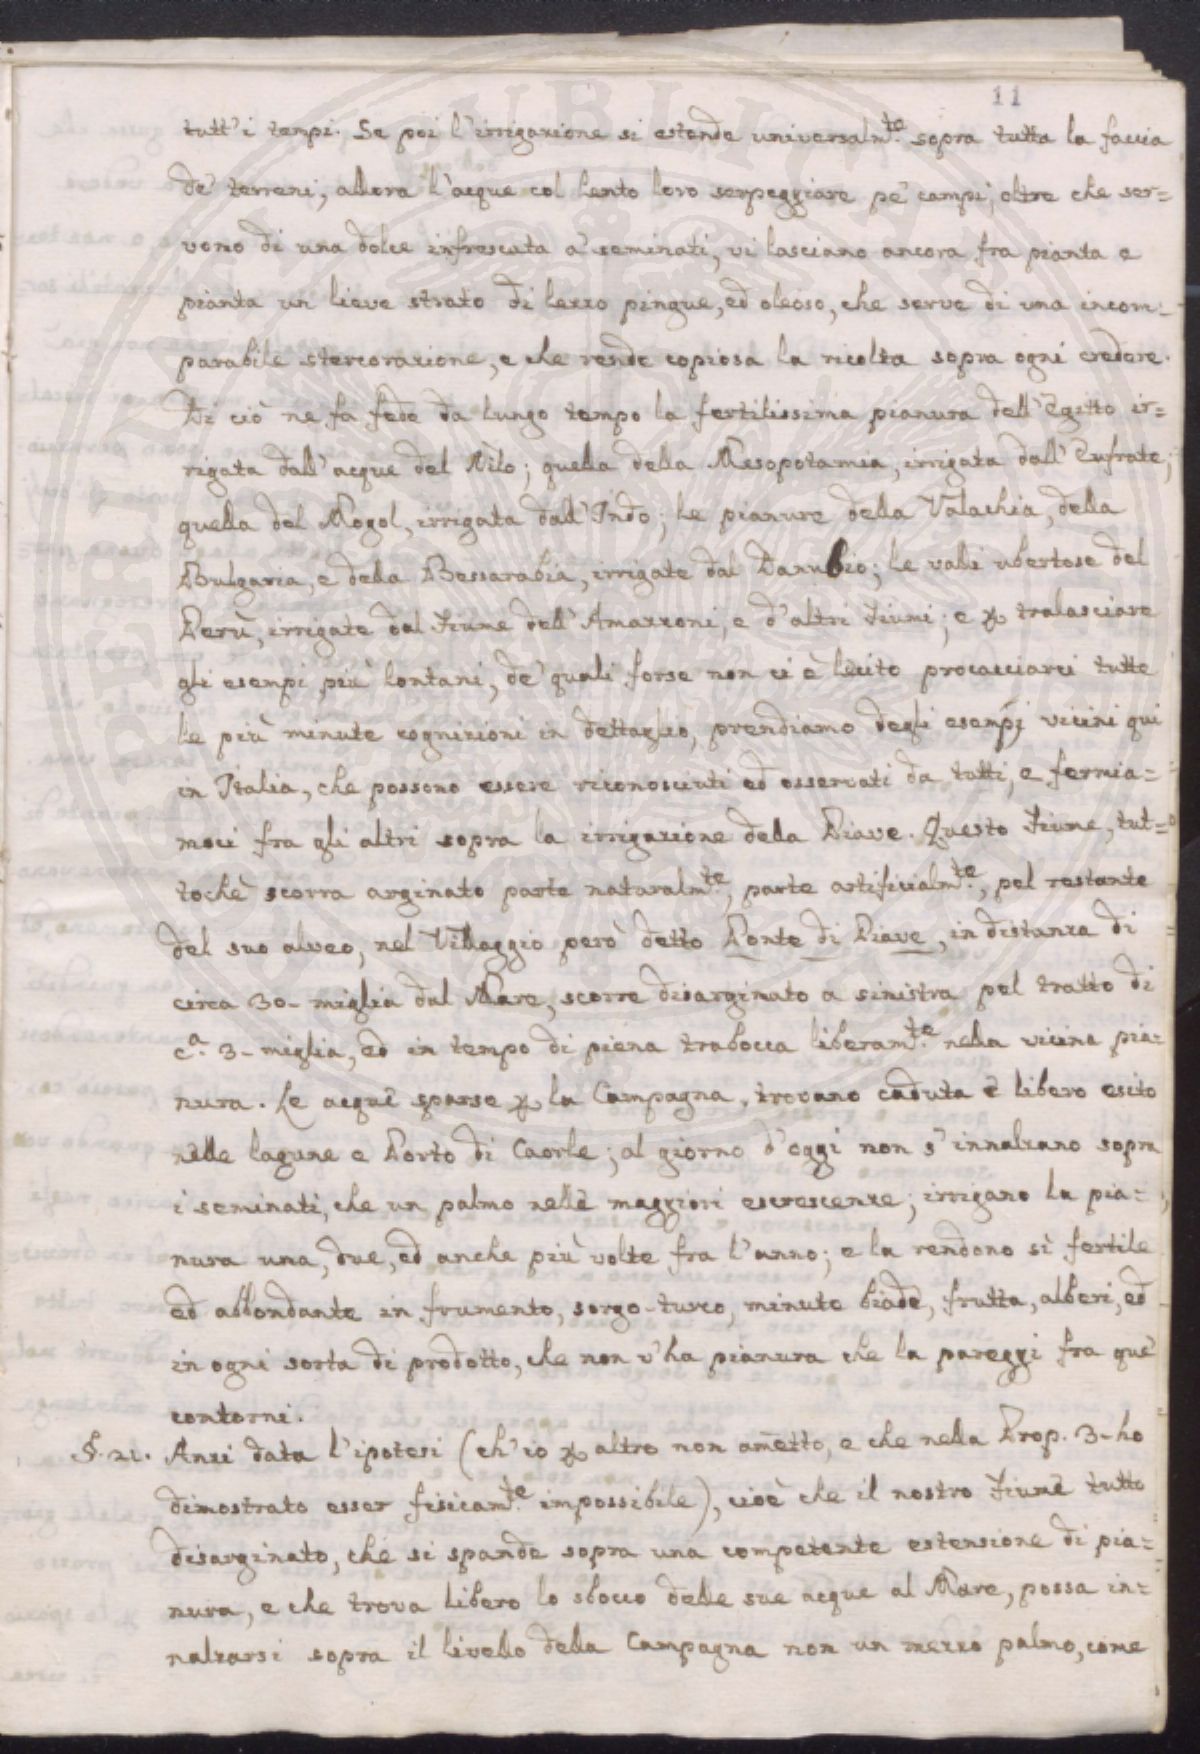 11
tutt' i tempi. Se poi l'irrigazione si estende universalm.te sopra tutta la faccia
de' terreni, allora l'acque col lento loro serpeggiare pe' campi, oltre che ser=
vono di una dolce infrescata a' seminati, vi lasciano ancora fra pianta e
pianta un lieve strato di lezzo pingue, ed oleoso, che serve di una incom=
parabile stercorazione, e che rende copiosa la ricolta sopra ogni credere.
Di ciò ne fa fede da lungo tempo la fertilissima pianura dell' Egitto ir=
rigata dall' acque del Nilo; quella della Mesopotamia, irrigata dall' Eufrate;
quella del Mogol, irrigata dall' Indo; le pianure della Valachia, della
Bulgaria, e della Bessarabia, irrigate dal Danubio; le valli ubertose del
Perù, irrigate dal Fiume dell' Amazzoni, e d'altri Fiumi; e p tralasciare
gli esempi più lontani, de' quali forse non ci è lecito procacciarci tutte
le più minute cognizioni in dettaglio, prendiamo degli esempj vicini qui
in Italia, che possono essere riconosciuti ed osservati da tutti, e fermia=
moci fra gli altri sopra la irrigazione della Piave. Questo Fiume, tut=
tochè scorra arginato parte naturalm.te, parte artificialm.te, pel restante
del suo alveo, nel Villaggio però detto Ponte di Piave, in distanza di
circa 30- miglia dal Mare, scorre disarginato a sinistra pel tratto di
c.a 3- miglia, ed in tempo di piena trabocca liberam.te nella vicina pia=
nura. Le acque sparse p la Campagna, trovano caduta e libero esito
nelle lagune e Porto di Caorle; al giorno d'oggi non s'innalzano sopra
i seminati, che un palmo nelle maggiori escrescenze; irrigano la pia=
nura una, due, ed anche più volte fra l'anno; e la rendono sì fertile
ed abbondante in frumento, sorgo-turco, minute biade, frutta, alberi, ed
in ogni sorta di prodotto, che non v'ha pianura che la pareggi fra que'
contorni.
§. 21. Anzi data l'ipotesi (ch'io p altro non ametto, e che nella Prop. 3- ho
dimostrato esser fisicam.te impossibile), cioè che il nostro Fiume tutto
disarginato, che si spande sopra una competente estensione di pia=
nura, e che trova libero lo sbocco delle sue acque al Mare, possa in=
nalzarsi sopra il livello della Campagna non un mezzo palmo, come